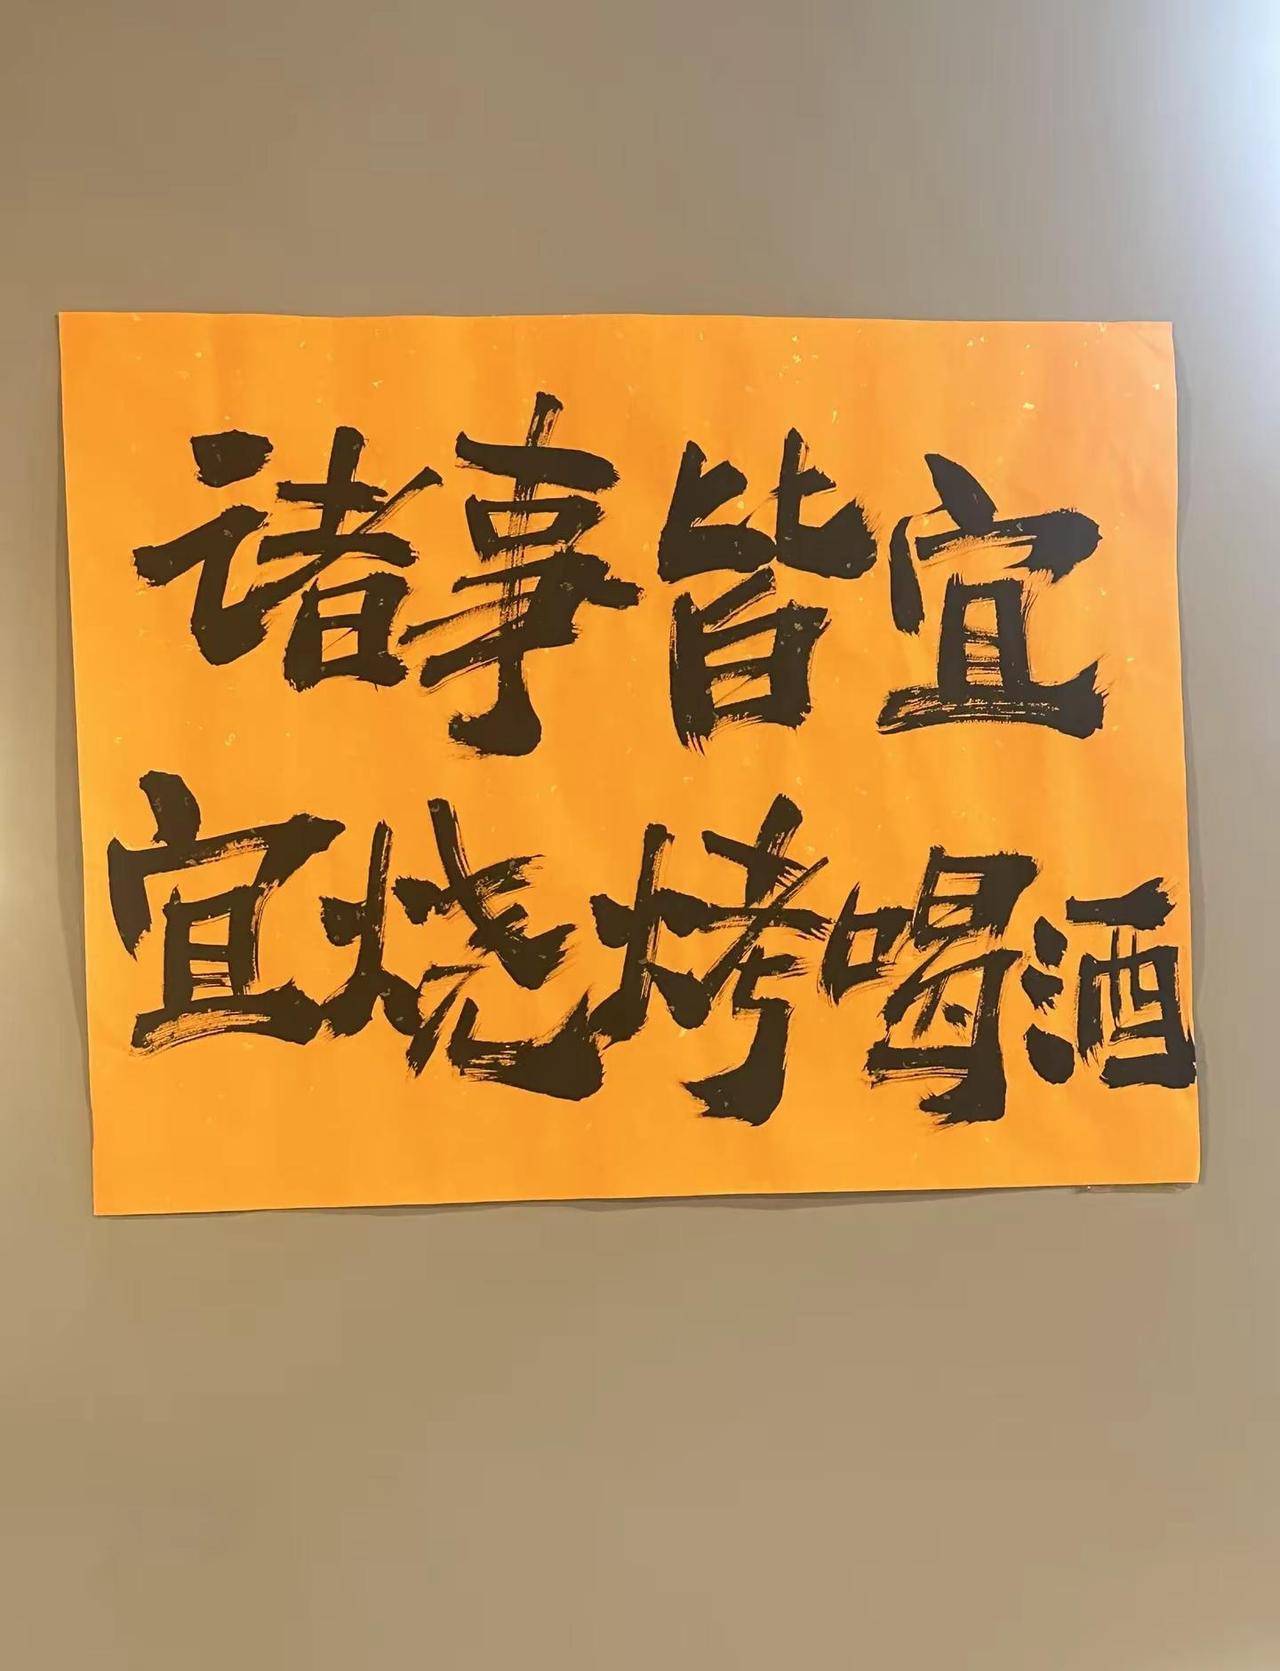 诸事皆宜
宜烧烤喝酒